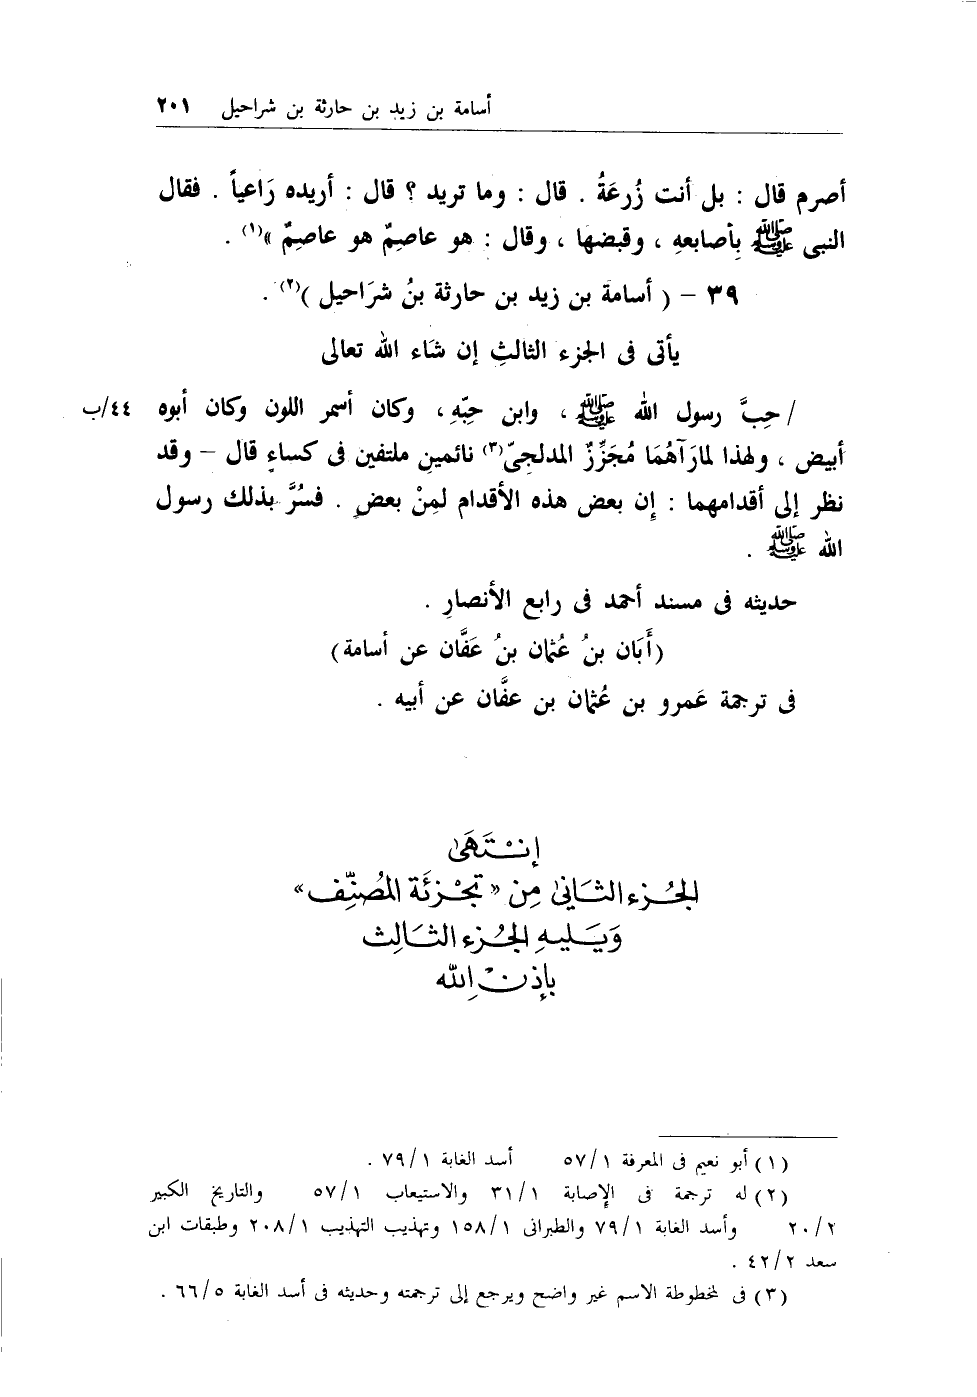 أسامة بن زيد بن حارثة بن شراحيل ٢٠١
أصرم قال : بل أنت زُرعَةُ . قال : وما تريد ؟ قال : أريده رَاعياً . فقال
النبى ﷺ بِأصابعهِ ، وقبضهَا ، وقال : هو عاصِمٌ هو عاصِمٌ »(١) .
٣٩ – ( أسامة بن زيد بن حارثة بنُ شرَاحيل )(٢) .
يأتى فى الجزء الثالثِ إن شَاء الله تعالى
/ حِبَّ رسول الله ﷺ ، وابن حِبّهِ ، وكان أسمر اللون وكان أبوه ٤٤/ب
أبيض ، ولهذا لمارَآهُمَا مُجَزِّزٌ المدلجىّ(٣) نائمينِ ملتفين فى كساءٍ قال – وقد
نظر إلى أقدامهما : إن بعض هذه الأقدام لمِنْ بعضٍ . فسُرَّ بذلك رسول
الله ﷺ .
حديثه فى مسند أحمد فى رابع الأنصارِ .
(أَبَان بنُ عُثمان بنُ عَفَّان عن أسامة)
فى ترجمة عَمرو بن عُثمان بن عفَّان عن أبيه .
إنْتَهَىٰ
الجُزء الثَانى مِن « تجْزئَة المُصنِّف »
وَيَليهِ الجُزء الثَالِث
بإذنْ اِلله
(١) أبو نعيم فى المعرفة ٥٧/١ أسد الغابة ٧٩/١ .
(٢) له ترجمة فى الإصابة ٣١/١ والاستيعاب ٥٧/١ والتاريخ الكبير
٢٠/٢ وأسد الغابة ٧٩/١ والطبرانى ١٥٨/١ وتهذيب التهذيب ٢٠٨/١ وطبقات ابن
سعد ٤٢/٢ .
(٣) فى لمخطوطة الاسم غير واضح ويرجع إلى ترجمته وحديثه فى أسد الغابة ٦٦/٥ .